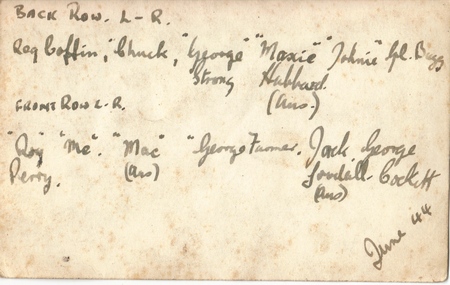 BACK ROW. L-R.
Reg Coffin, "Chuck", "George" "Maxie" "Johnie" Cpl. Bugg
Strong Hubbard.
(Aus.)
FRONT ROW L-R.
"Roy" "Me". "Mac" "George Farmer. Jack George
Perry. (Aus) Cockett
(Aus)
June 44